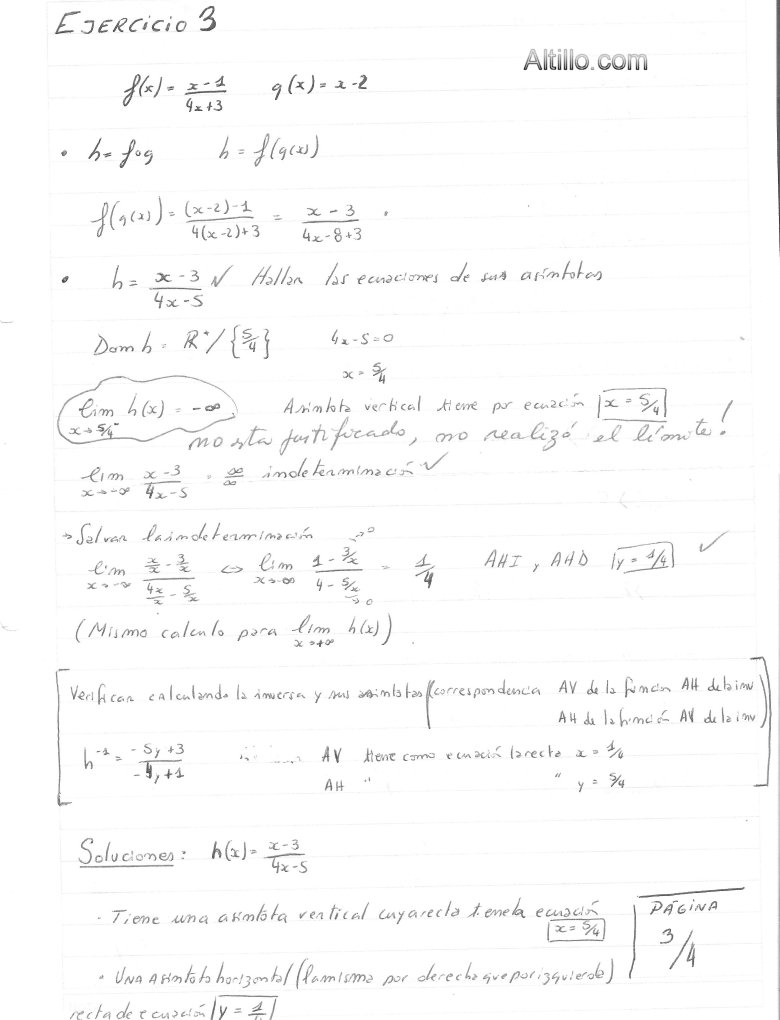 EJERCICIO 3
Altillo.com
f(x) = (x-1)/(4x+3)   g(x) = x-2
• h = f∘g   h = f(g(x))
f(g(x)) = ((x-2)-1)/(4(x-2)+3) = (x-3)/(4x-8+3) .
• h = (x-3)/(4x-5) ✓ Hallar las ecuaciones de sus asíntotas
Dom h = R*/{5/4}   4x-5=0
x = 5/4
lim x→5/4⁻ h(x) = -∞. Asíntota vertical tiene por ecuación |x = 5/4|
no esta justificado, no realizó el límite!
lim x→-∞ (x-3)/(4x-5) = ∞/∞ indeterminación ✓
→ Salvar la indeterminación
lim x→-∞ (x/x - 3/x)/(4x/x - 5/x) ⇔ lim x→-∞ (1 - 3/x →0)/(4 - 5/x →0) = 1/4   AHI y AHD |y = 1/4| ✓
(Mismo calculo para lim x→+∞ h(x))
Verificar calculando la inversa y sus asíntotas (correspondencia AV de la función AH de la inv
AH de la función AV de la inv)
h⁻¹ = (-5y+3)/(-4y+1)   AV tiene como ecuación la recta x = 1/4
AH " " y = 5/4
Soluciones: h(x) = (x-3)/(4x-5)
· Tiene una asíntota vertical cuya recta tiene la ecuación
|x = 5/4|
PÁGINA
3/4
· UNA Asíntota horizontal (la misma por derecha que por izquierda)
recta de ecuación |y = 1/4|